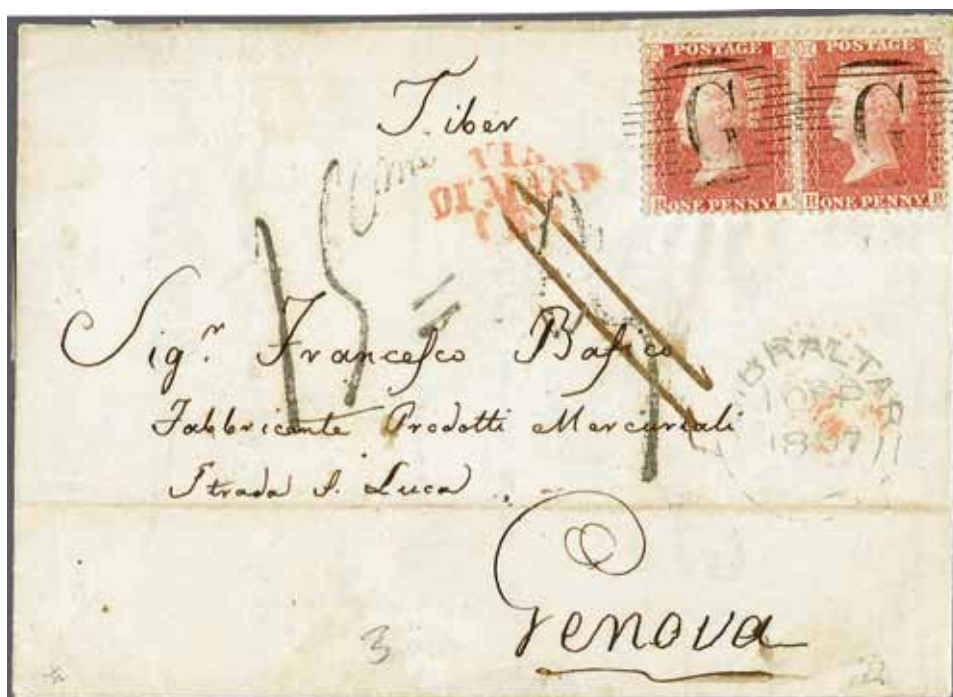 POSTAGE POSTAGE
G G
ONE PENNY ONE PENNY
Tiber
VIA
DI MARE
15
Sigr. Francesco Bafico
Fabbricante Prodotti Mercuriali
Strada S. Luca
Genova
GIBRALTAR
1857
3